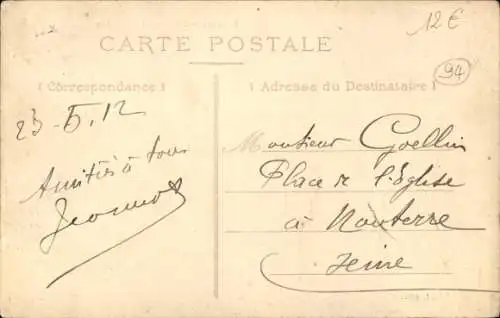 12€
CARTE POSTALE
94
( Correspondance )
( Adresse du Destinataire )
23-5.12
Amitiés à tous
Monsieur Goellin
Place de l'Eglise
à Nanterre
Seine